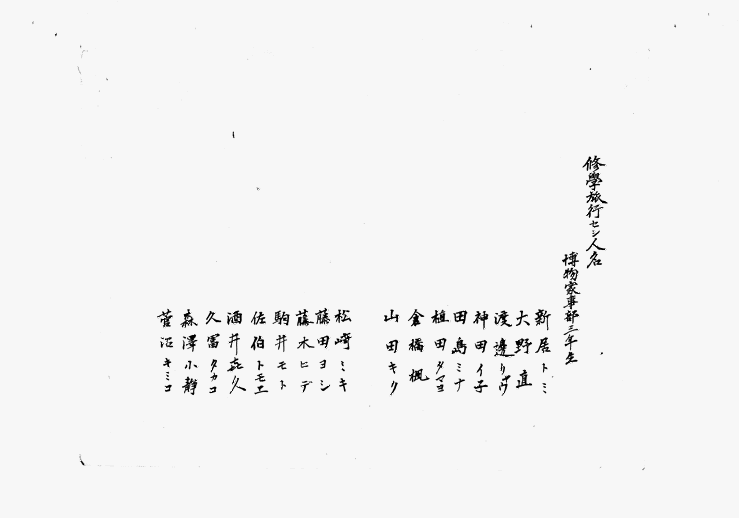 修學旅行セシ人名
博物家事部三年生
新居トミ
大野直
渡邉リヤウ
神田イ子
田島ミナ
植田タマヨ
倉橋楓
山田キク
松崎ミキ
藤田ヨシ
藤木ヒデ
駒井モト
佐伯トモエ
酒井㐂久
久冨タカコ
森澤小静
菅沼キミコ